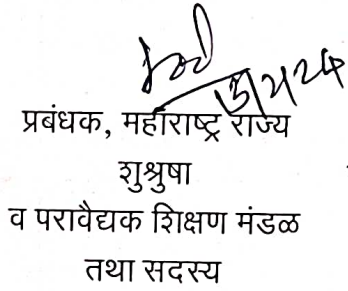 प्रबंधक, महाराष्ट्र राज्य
शुश्रुषा
व परावैद्यक शिक्षण मंडळ
तथा सदस्य